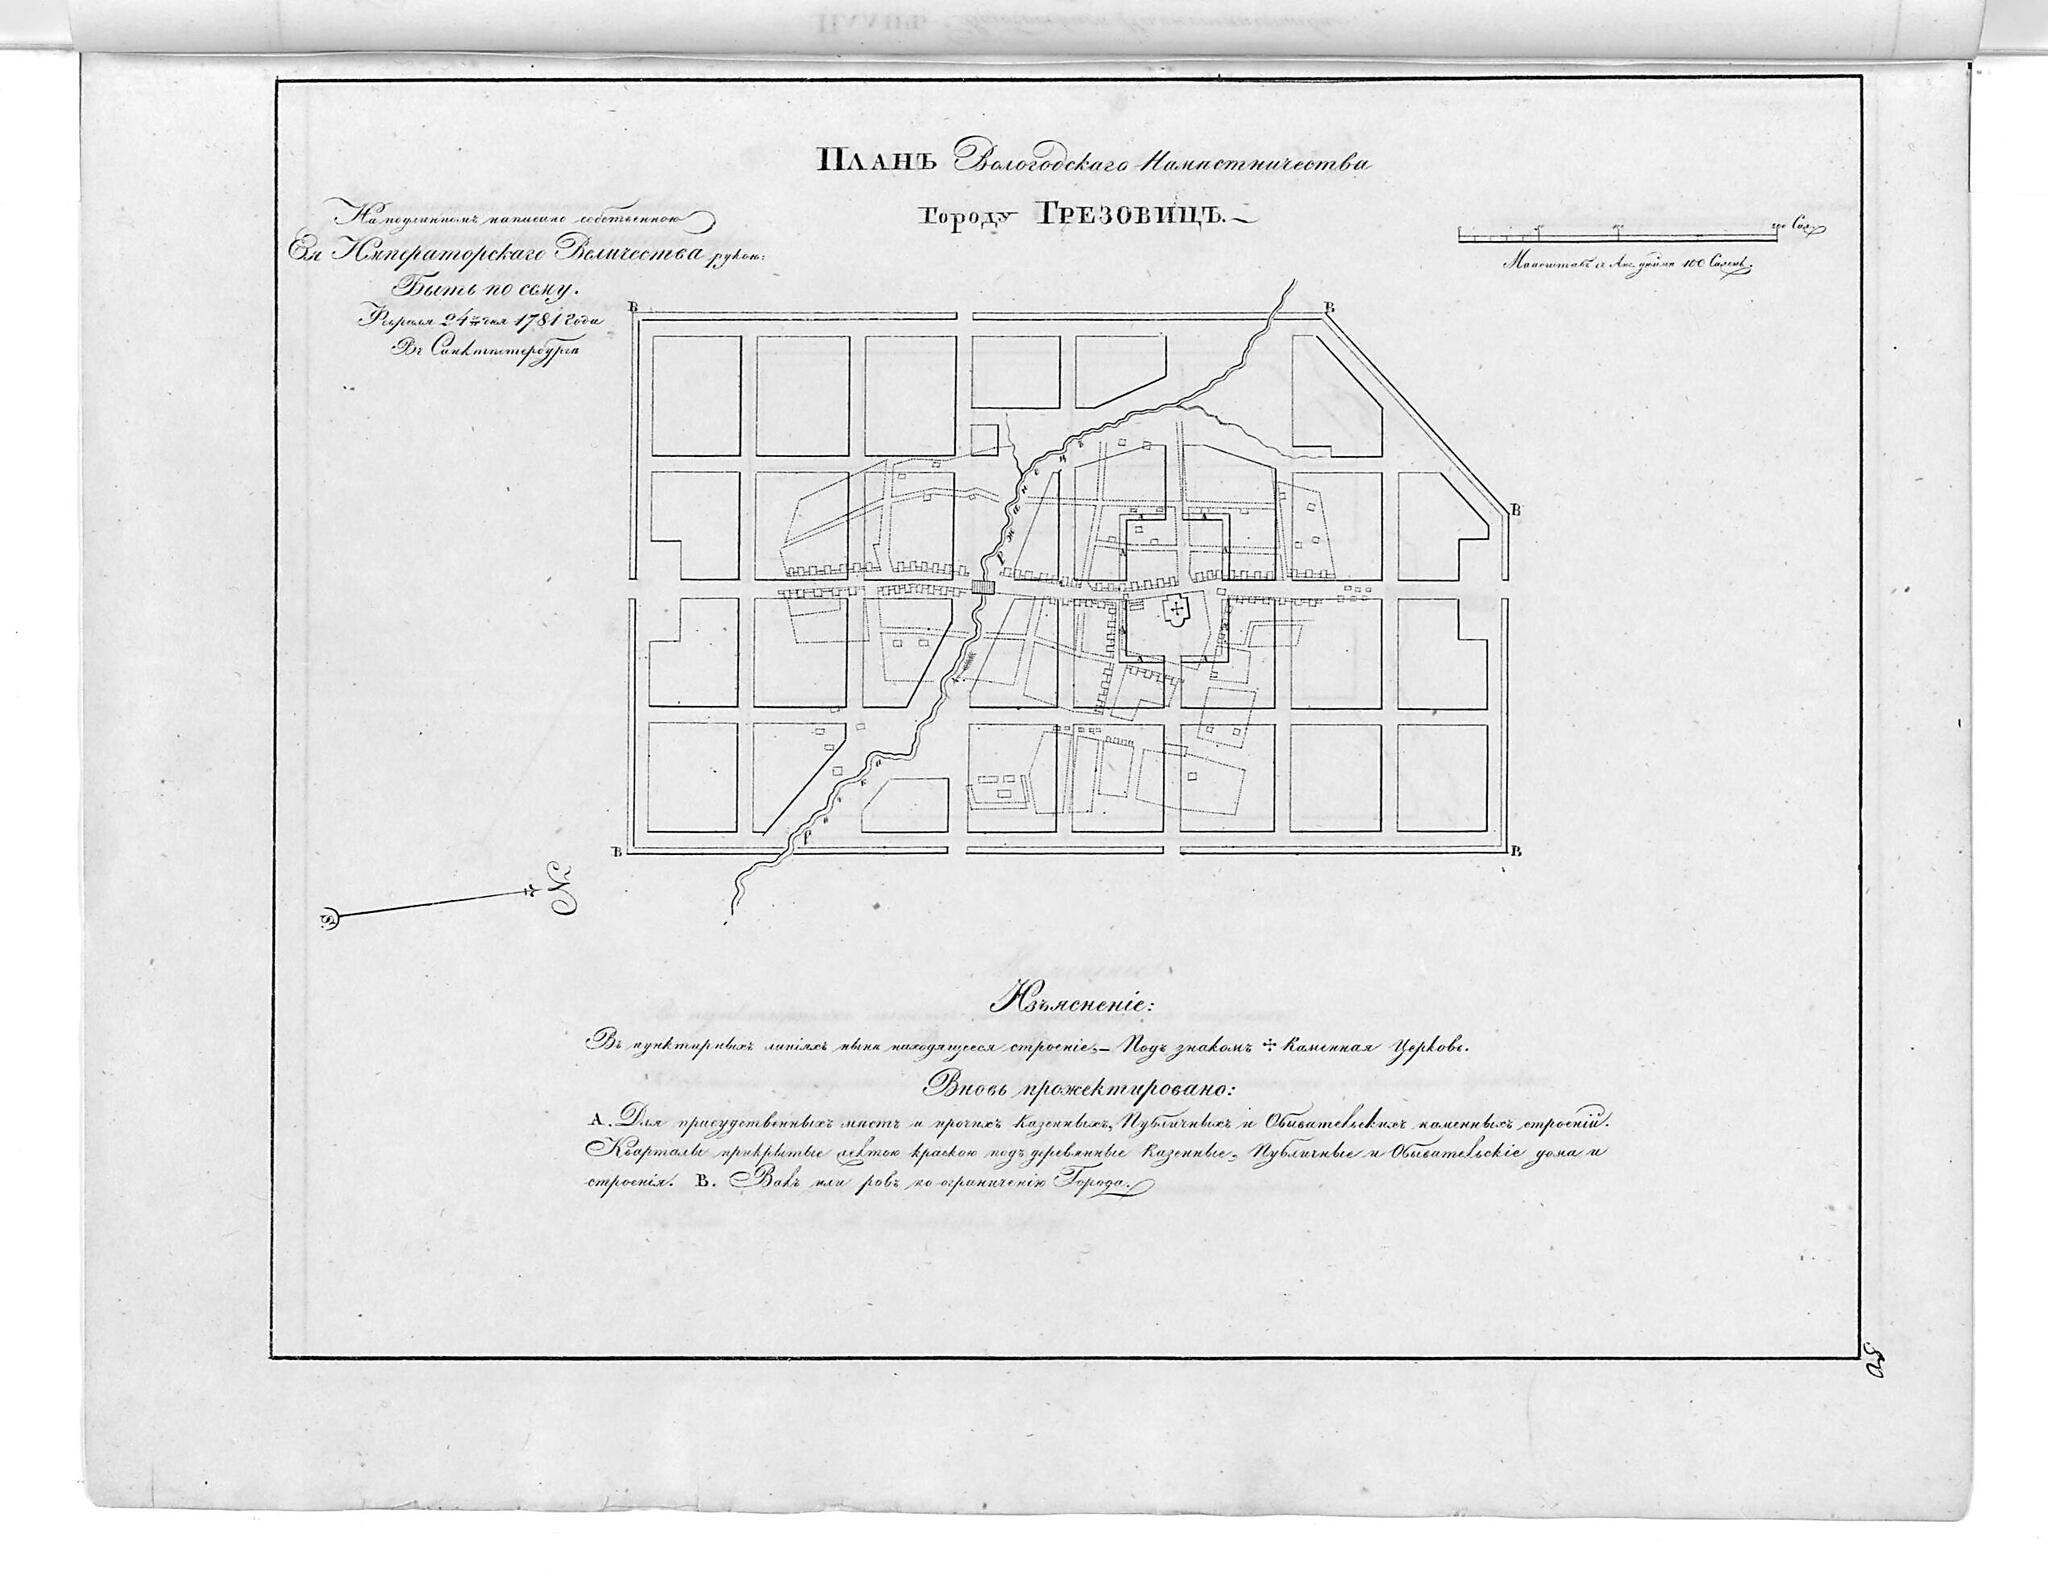 ПЛАНЪ Вологодскаго Намѣстничества
Городу ГРЕЗОВИЦЪ.
На подлинномъ написано собственною
Ея Императорскаго Величества рукою:
Быть по сему.
Февраля 24 дня 1781 года
Въ Санктпетербургѣ
50 100 200 Саж.
Масштабъ въ Анг. дюймѣ 100 Саженъ.
В В
В
В В
А А
А А
А А
А А
Рѣка
N
S
Изъясненіе:
Въ пунктирныхъ линіяхъ нынѣ находящееся строеніе, – Подъ знакомъ ✢ Каменная Церковь.
Вновь прожектировано:
А. Для присудственныхъ мѣстъ и прочихъ Казенныхъ, Публичныхъ и Обывательскихъ каменныхъ строеній.
Кварталы прикрытые желтою краскою подъ деревянные Казенные, Публичные и Обывательскіе дома и
строенія. В. Валъ или ровъ ко ограниченію Города.
50